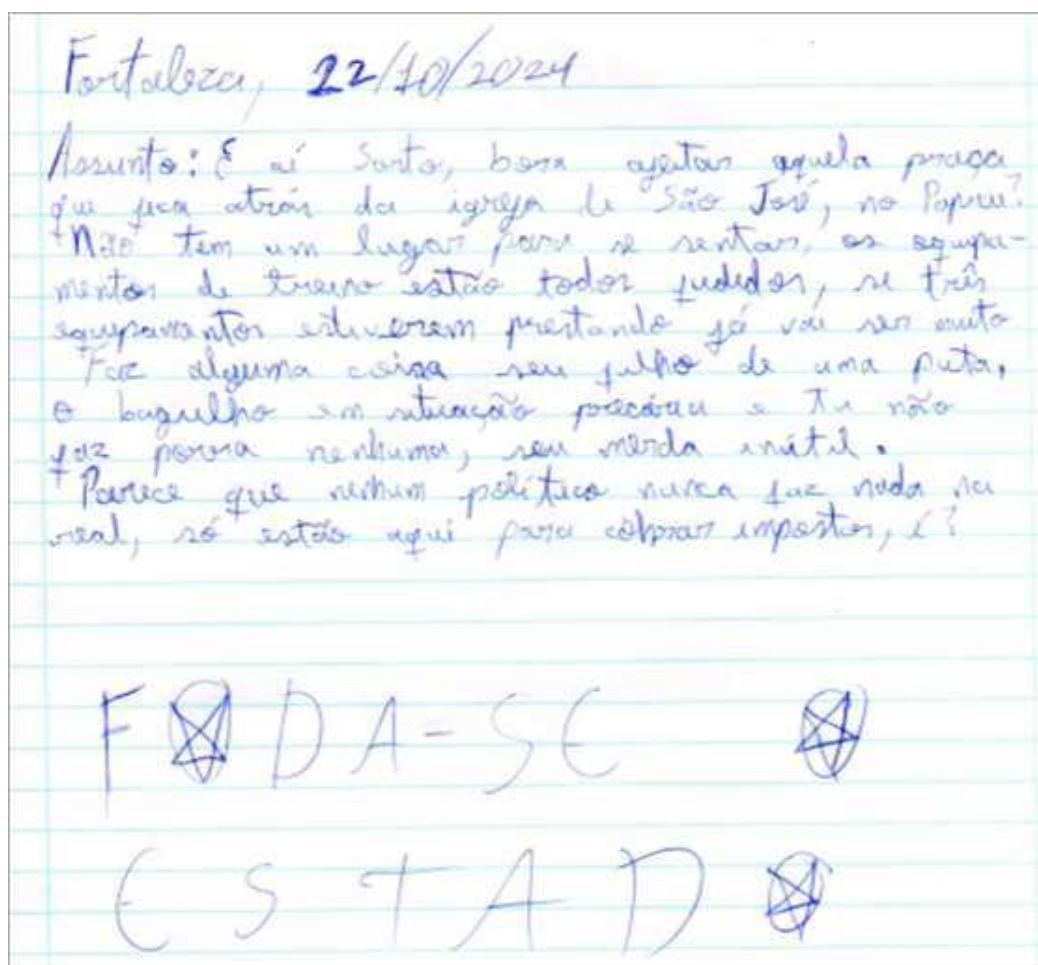 Fortaleza, 22/10/2024
Assunto: E aí Sarto, bora ajeitar aquela praça
que fica atrás da igreja de São José, no Papicu?
Não tem um lugar para se sentar, os equipa-
mentos de treino estão todos fudidos, se três
equipamentos estiverem prestando já vai ser muito
Faz alguma coisa seu filho de uma puta,
o bagulho em situação precária e tu não
faz porra nenhuma, seu merda inútil.
Parece que nenhum político nunca faz nada na
real, só estão aqui para cobrar impostos, é?
FODA-SE O
ESTADO